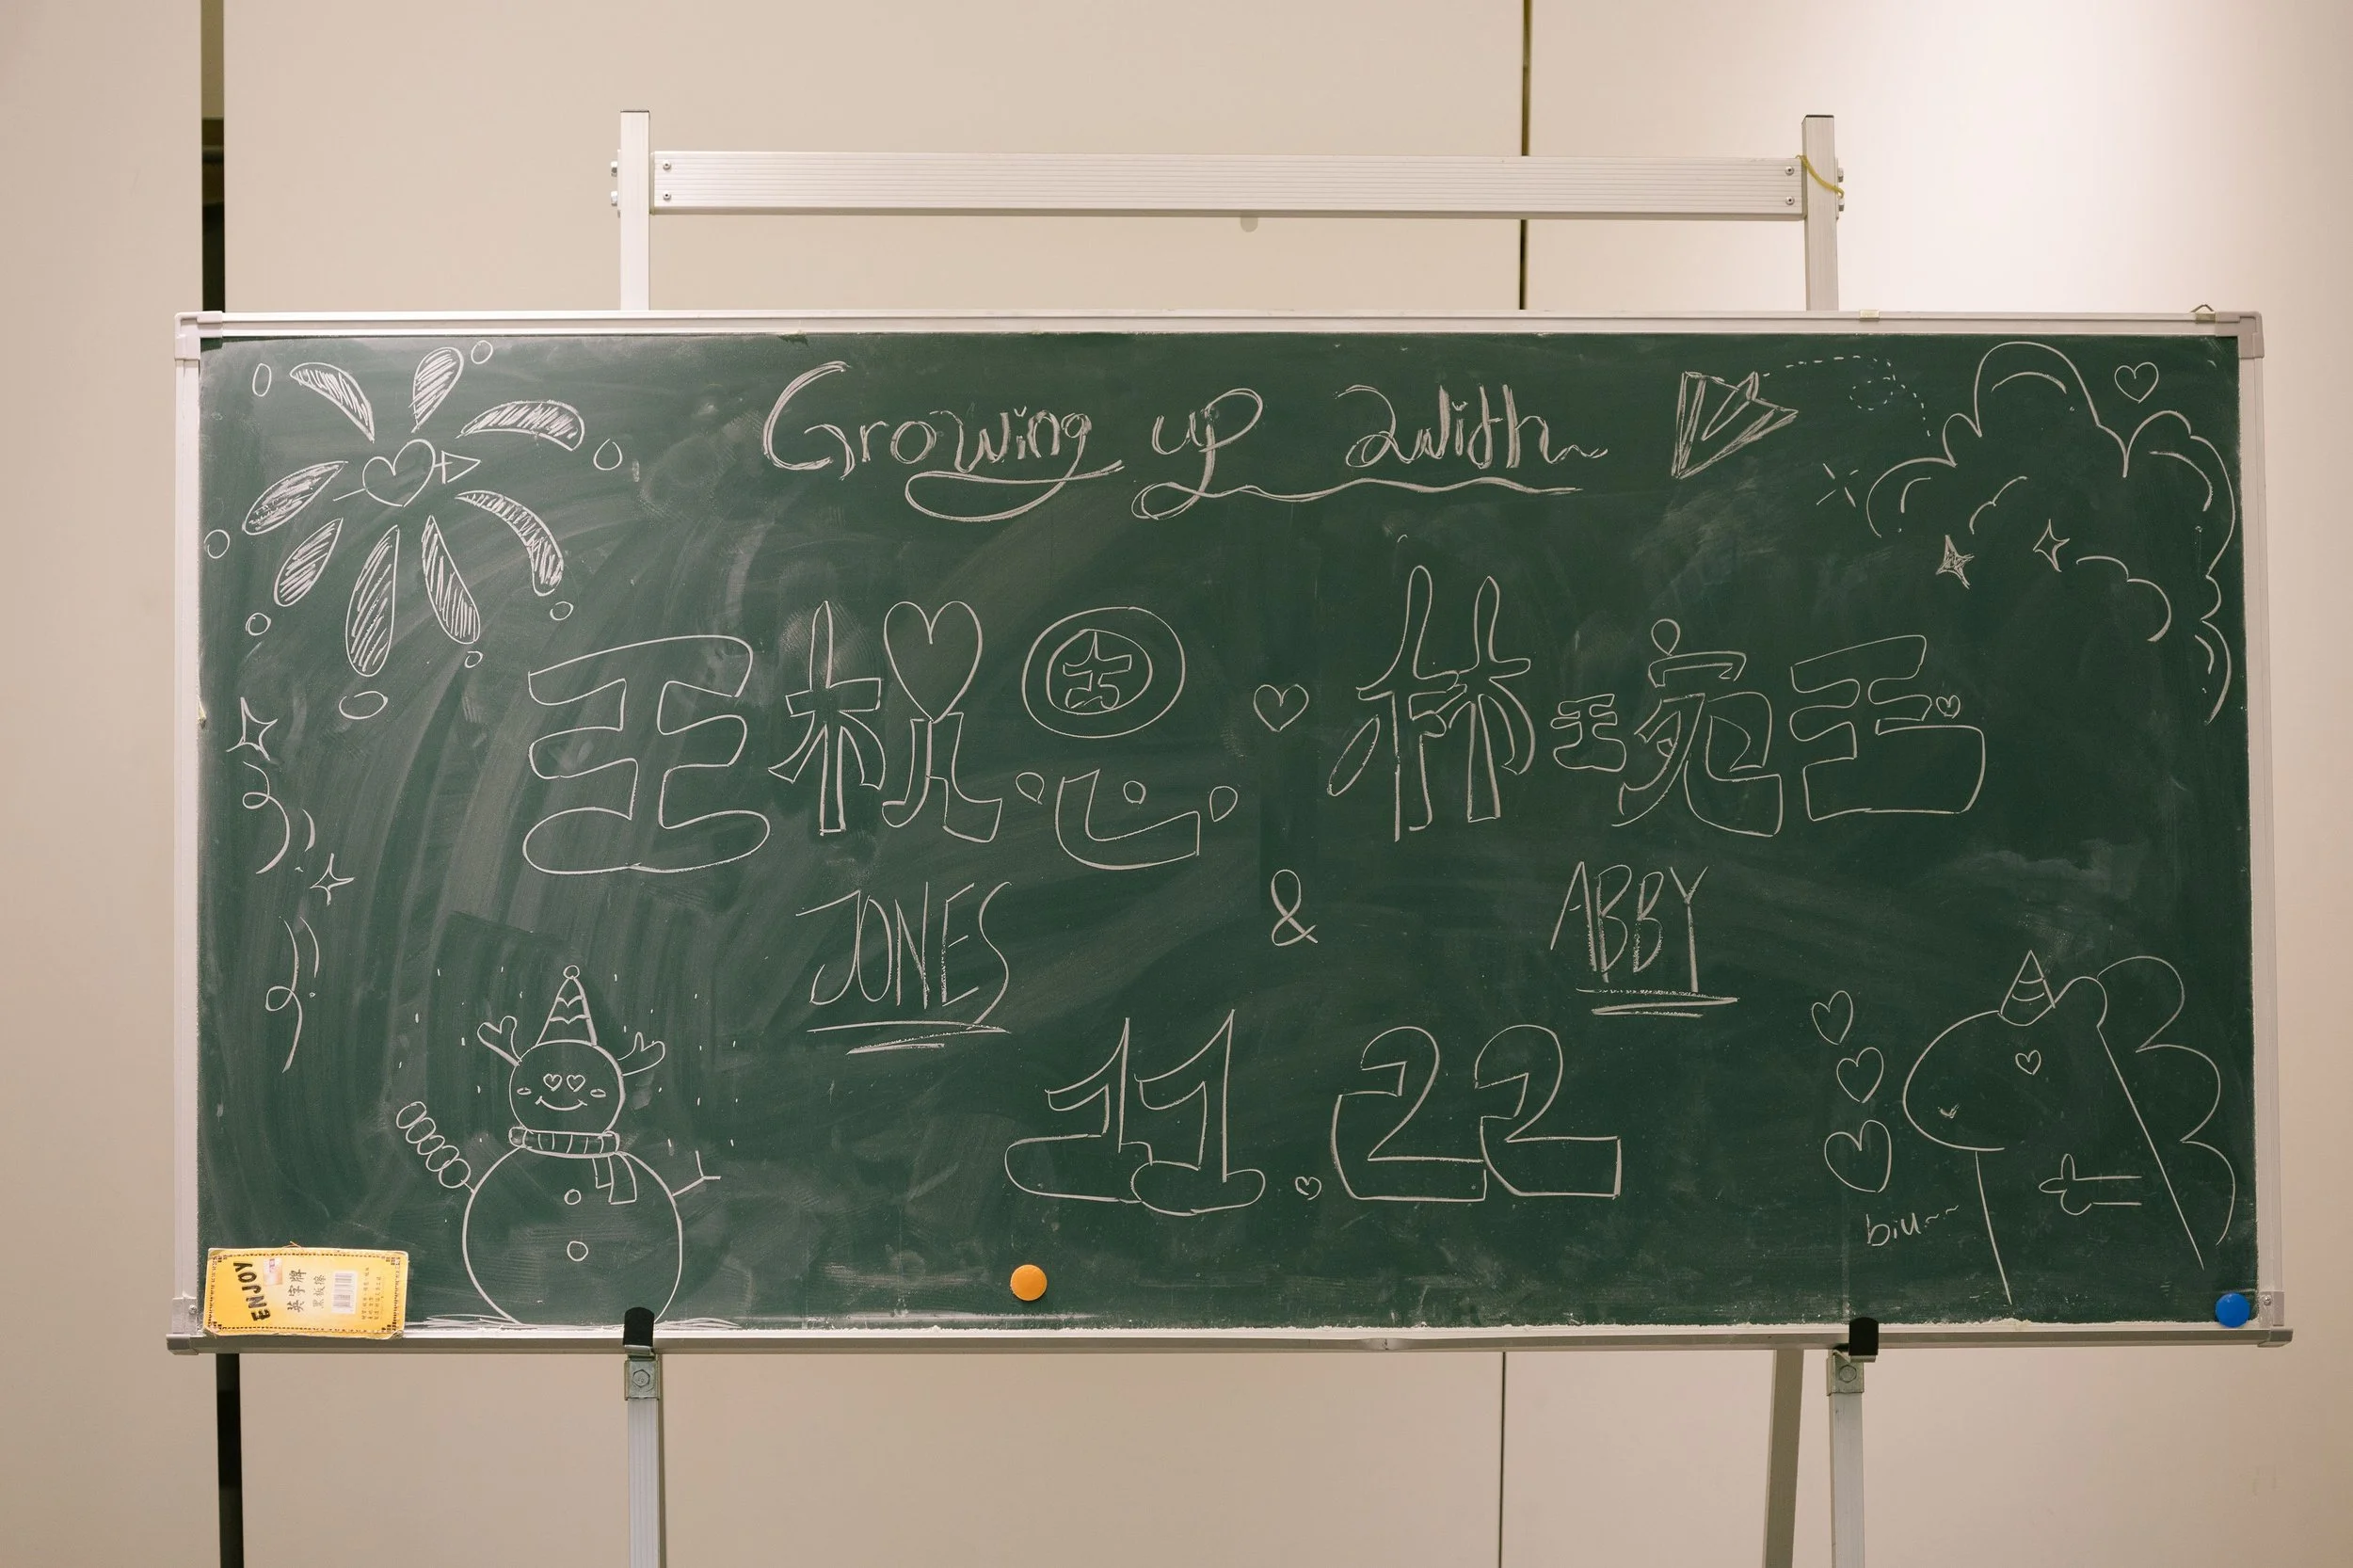 Growing up with
王柷恩 林琬玉
JONES & ABBY
11.22
biu~~
ENJOY
英字牌
黑板擦